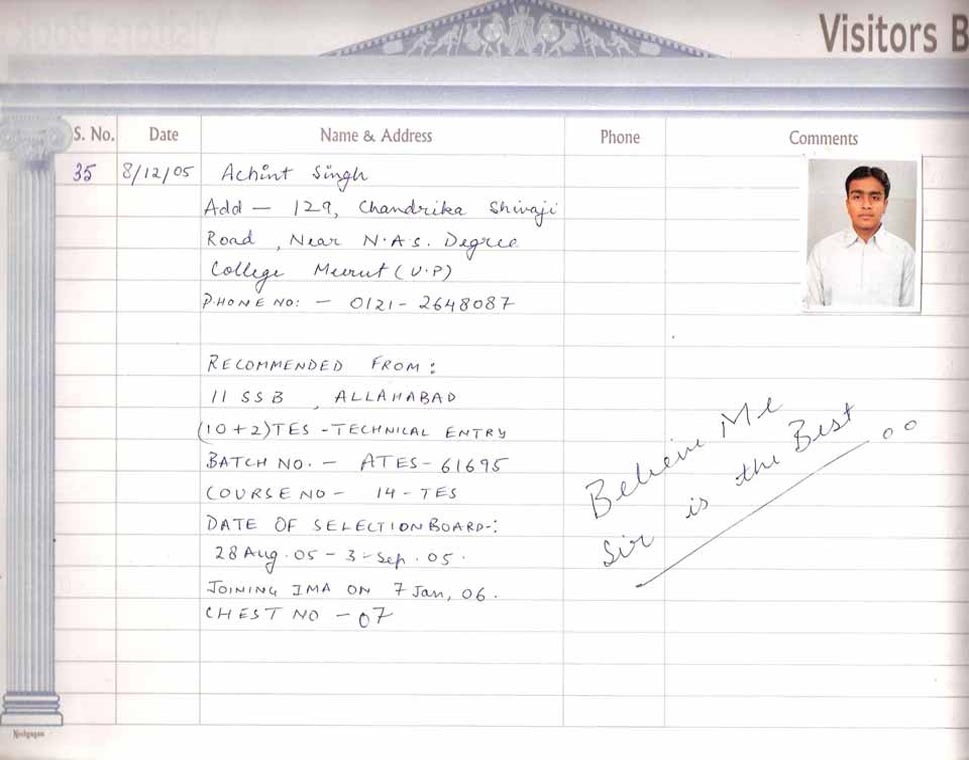 Visitors B
S. No.
Date
Name & Address
Phone
Comments
35
8/12/05
Achint Singh
Add – 129, Chandrika Shivaji
Road , Near N.A.S. Degree
College Meerut (U.P)
PHONE NO: – 0121- 2648087
RECOMMENDED FROM:
11 SSB , ALLAHABAD
(10+2) TES - TECHNICAL ENTRY
BATCH NO. – ATES- 61695
COURSE NO – 14 - TES
DATE OF SELECTION BOARD-:
28 Aug. 05 – 3 - Sep. 05.
JOINING IMA ON 7 Jan, 06.
CHEST NO – 07
Believe Me
Sir is the Best
Neelgagan